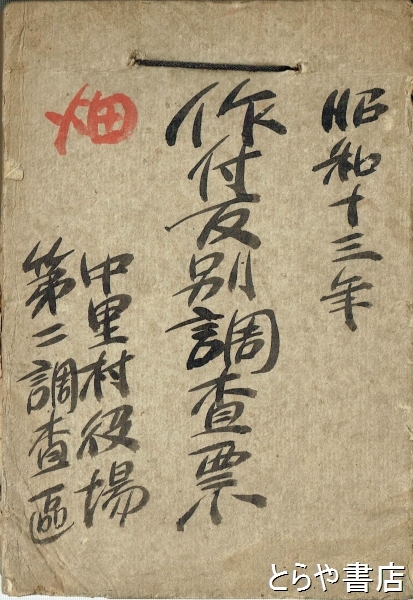 昭和十三年
作付反別調査票
畑
中里村役場
第二調査區
とらや書店